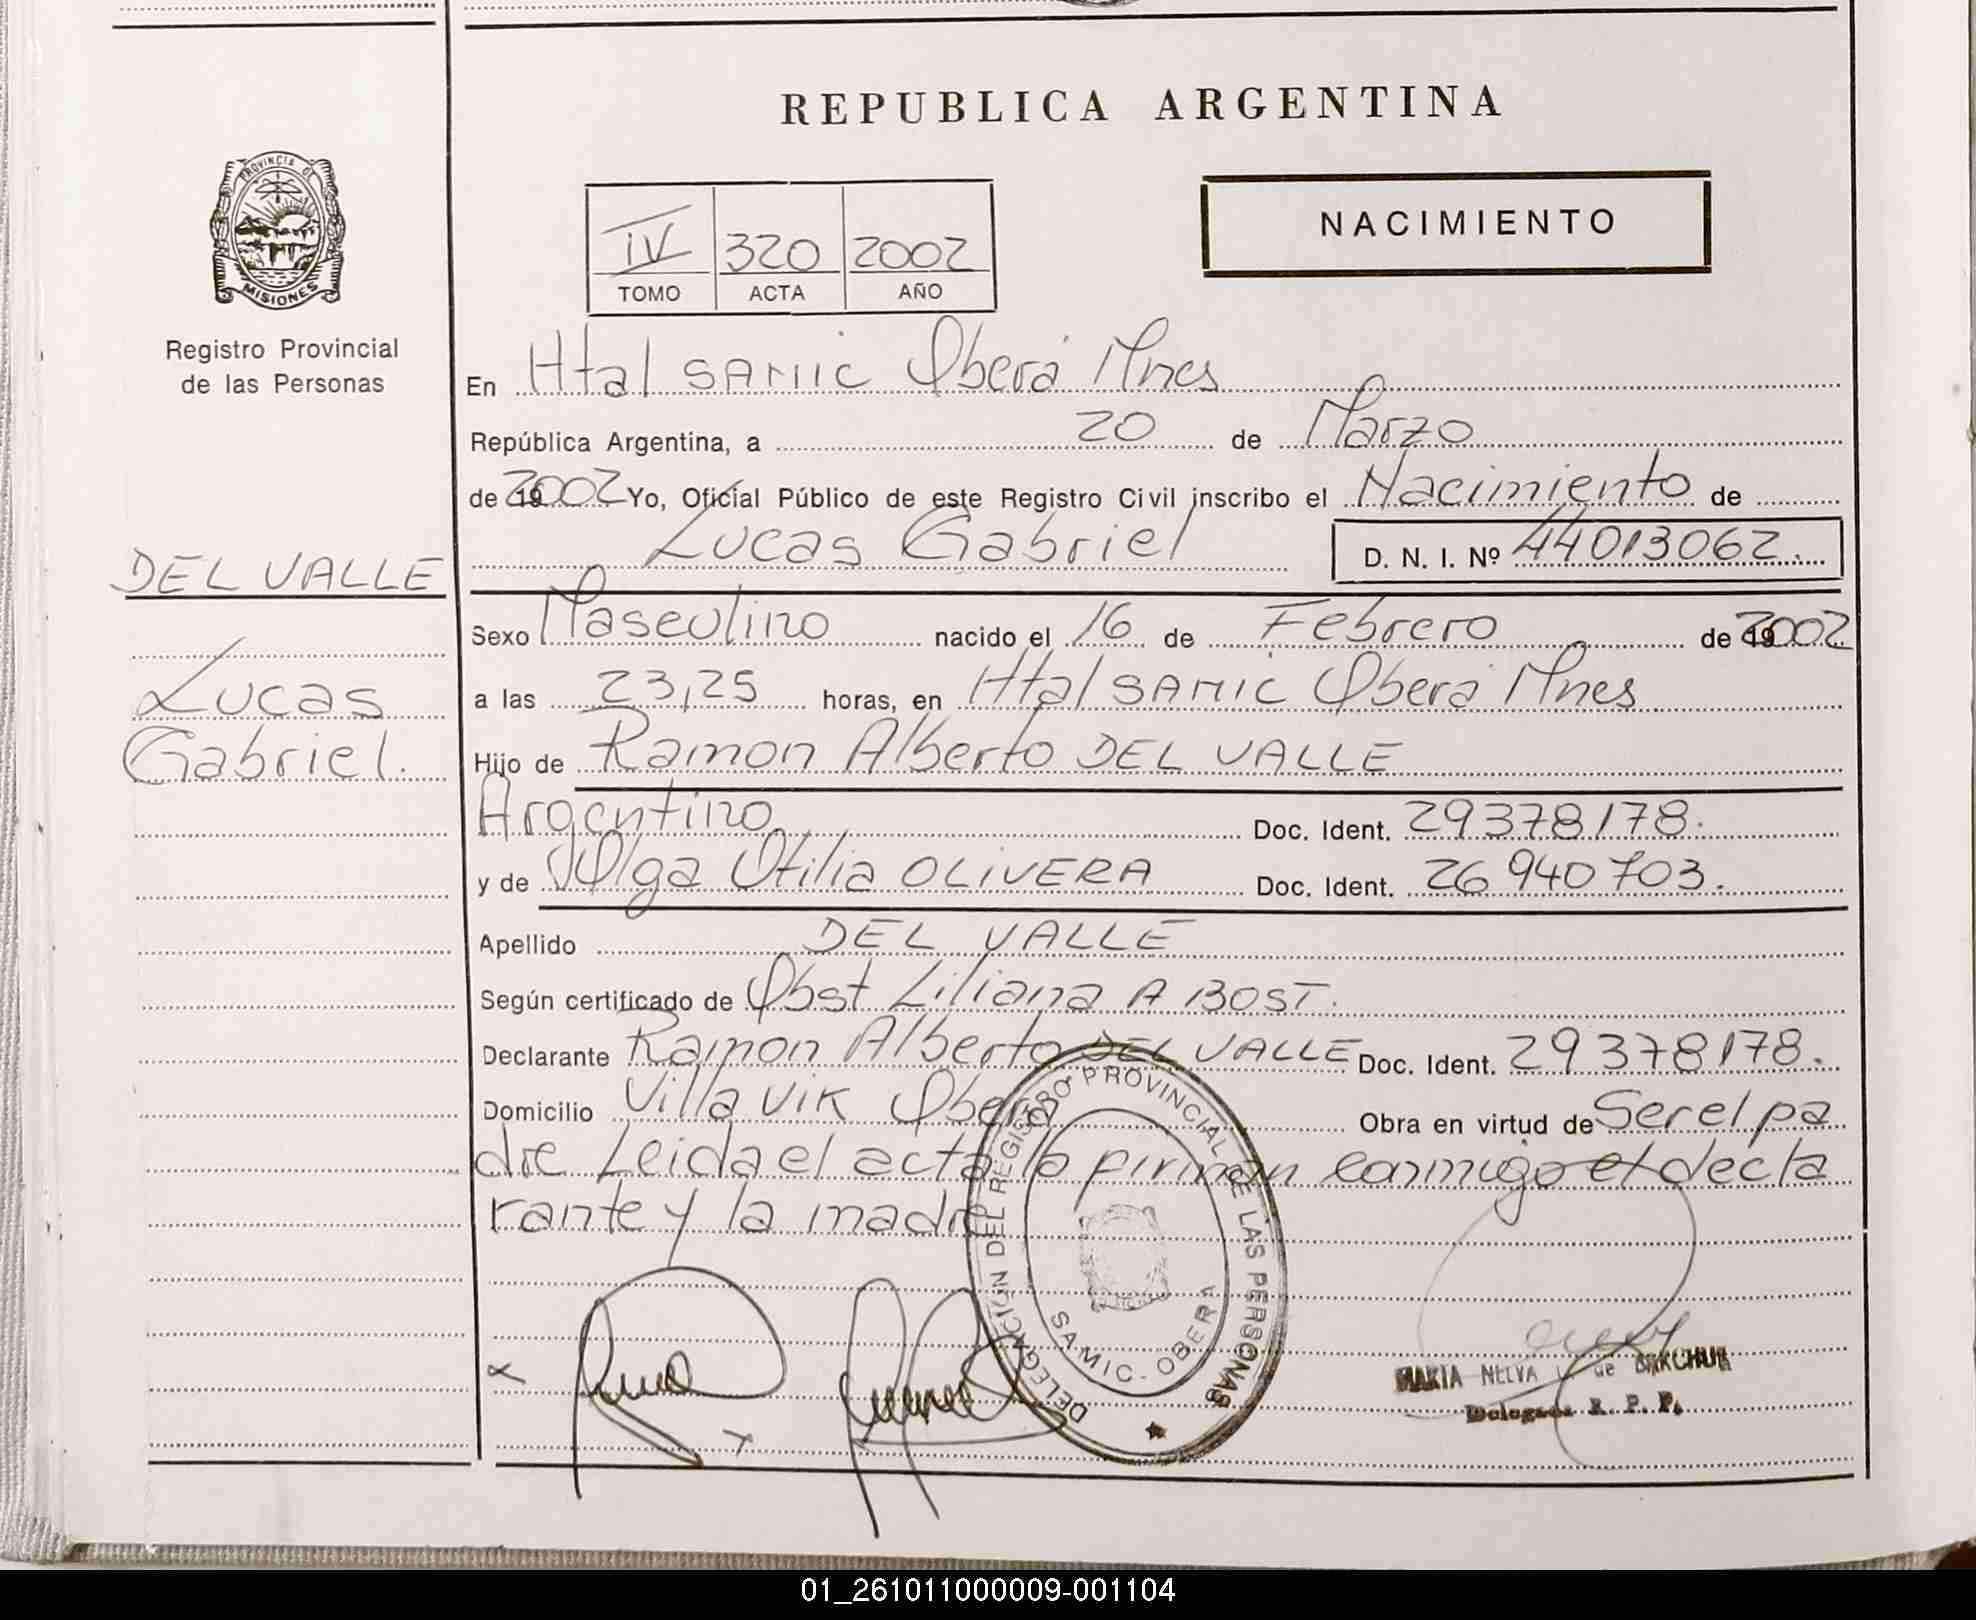 REPUBLICA ARGENTINA
PROVINCIA DE
MISIONES
Registro Provincial
de las Personas
IV 320 2002
TOMO ACTA AÑO
NACIMIENTO
En Htal SAMIC Oberá Mnes
República Argentina, a 20 de Marzo
de 2002 Yo, Oficial Público de este Registro Civil inscribo el Nacimiento de
Lucas Gabriel D. N. I. Nº 44013062.
DEL VALLE
Lucas
Gabriel.
Sexo Masculino nacido el 16 de Febrero de 2002
a las 23,25 horas, en Htal SAMIC Oberá Mnes
Hijo de Ramon Alberto DEL VALLE
Argentino Doc. Ident. 29378178.
y de Olga Otilia OLIVERA Doc. Ident. 26940703.
Apellido DEL VALLE
Según certificado de Obst Liliana A BOST.
Declarante Ramon Alberto DEL VALLE Doc. Ident. 29378178.
Domicilio Villa VIK Oberá Obra en virtud de Ser el pa
dre Leida el acta la firman conmigo el decla
rante y la madre
DELEGACIÓN DEL REGISTRO PROVINCIAL DE LAS PERSONAS
SAMIC. OBERA
MARIA NELVA de
Delegada R. P. P.
01_261011000009-001104